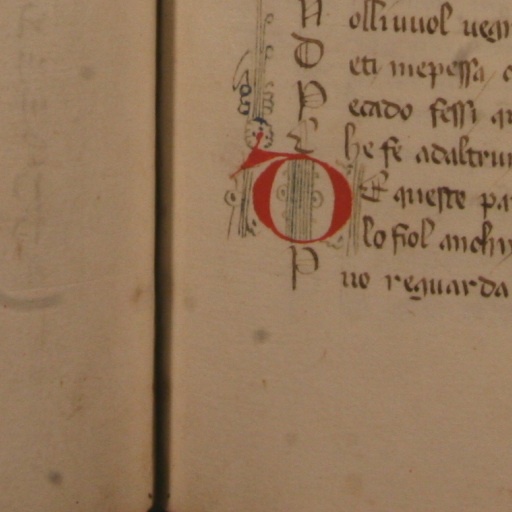 N olli uuol uegn
D eti mepessa
P ecado fessi
C he fe adaltru
DE queste pa
lo fiol anchi
P uo reguarda